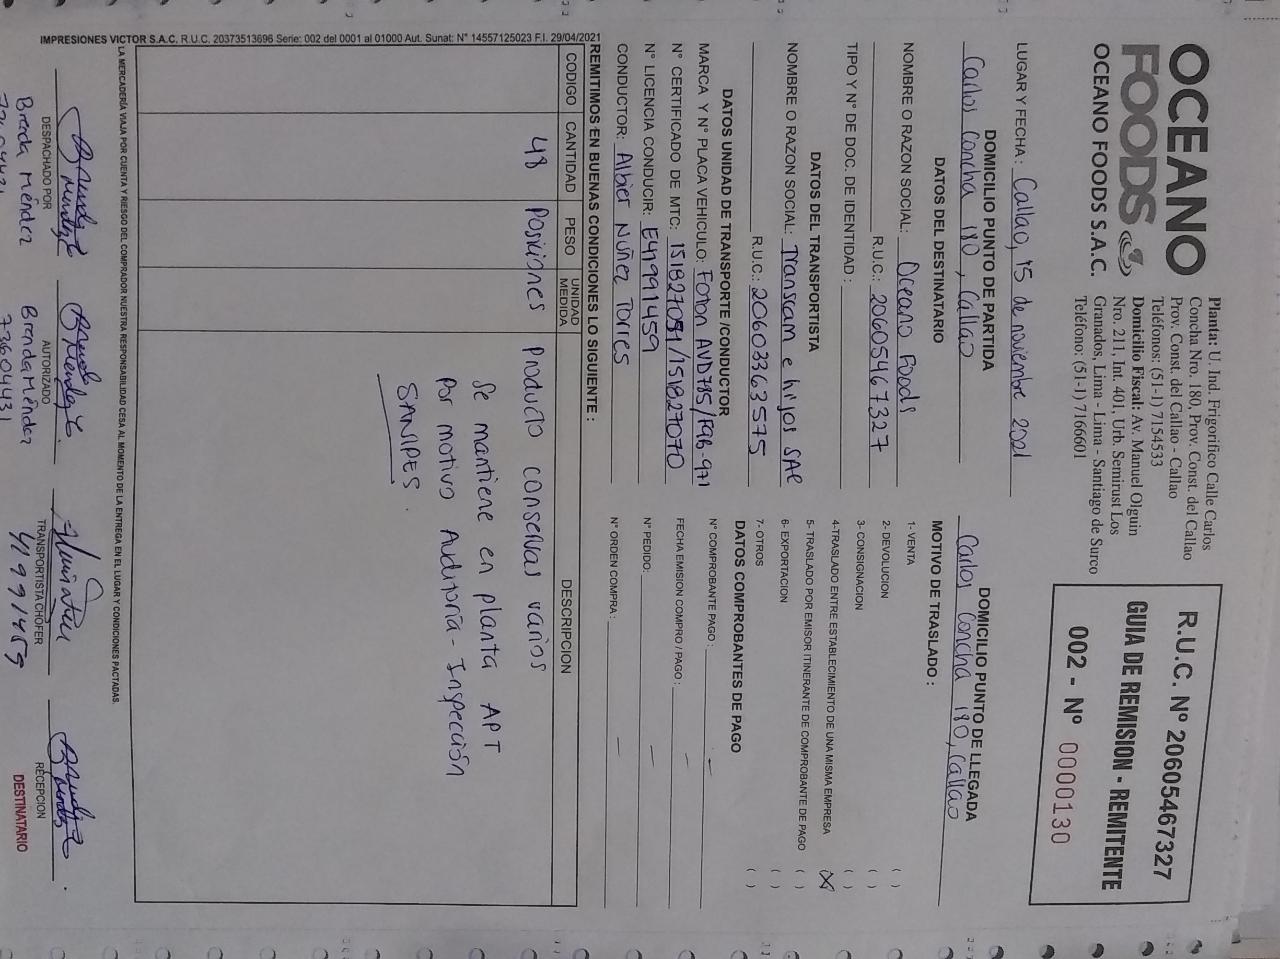 OCEANO
FOODS
OCEANO FOODS S.A.C.
Planta: U. Ind. Frigorifico Calle Carlos
Concha Nro. 180, Prov. Const. del Callao
Prov. Const. del Callao - Callao
Teléfonos: (51-1) 7154533
Domicilio Fiscal: Av. Manuel Olguin
Nro. 211, Int. 401, Urb. Semirust Los
Granados, Lima - Lima - Santiago de Surco
Teléfono: (51-1) 7166601
R.U.C. Nº 20605467327
GUIA DE REMISION - REMITENTE
002 - Nº 0000130
LUGAR Y FECHA: Callao, 15 de noviembre 2021
DOMICILIO PUNTO DE PARTIDA
Carlos Concha 180, Callao
DOMICILIO PUNTO DE LLEGADA
Carlos Concha 180, Callao
DATOS DEL DESTINATARIO
NOMBRE O RAZON SOCIAL: Oceano Foods
R.U.C.: 20605467327
TIPO Y Nº DE DOC. DE IDENTIDAD:
DATOS DEL TRANSPORTISTA
NOMBRE O RAZON SOCIAL: Transcam e hijos SAC
R.U.C.: 20603363575
DATOS UNIDAD DE TRANSPORTE /CONDUCTOR
MARCA Y Nº PLACA VEHICULO: Foton AVD785/F9B-971
Nº CERTIFICADO DE MTC: 151827091/151827070
Nº LICENCIA CONDUCIR: E41991459
CONDUCTOR: Albier Nuñez Torres
MOTIVO DE TRASLADO :
1- VENTA ( )
2- DEVOLUCION ( )
3- CONSIGNACION ( )
4-TRASLADO ENTRE ESTABLECIMIENTO DE UNA MISMA EMPRESA (X)
5- TRASLADO POR EMISOR ITINERANTE DE COMPROBANTE DE PAGO ( )
6- EXPORTACION ( )
7- OTROS ( )
DATOS COMPROBANTES DE PAGO
Nº COMPROBANTE PAGO : -
FECHA EMISION COMPRO / PAGO : -
Nº PEDIDO: -
Nº ORDEN COMPRA: -
REMITIMOS EN BUENAS CONDICIONES LO SIGUIENTE :
CODIGO CANTIDAD PESO UNIDAD MEDIDA DESCRIPCION
48 Posiciones Producto conservas varios
Se mantiene en planta APT
Por motivo Auditoria - Inspección
SANIPES.
LA MERCADERÍA VIAJA POR CUENTA Y RIESGO DEL COMPRADOR NUESTRA RESPONSABILIDAD CESA AL MOMENTO DE LA ENTREGA EN EL LUGAR Y CONDICIONES PACTADAS.
IMPRESIONES VICTOR S.A.C. R.U.C. 20373513696 Serie: 002 del 0001 al 01000 Aut. Sunat: Nº 14557125023 F.I. 29/04/2021
DESPACHADO POR
Brenda Méndez
AUTORIZADO
Brenda Méndez
73604431
TRANSPORTISTA CHOFER
41991459
RECEPCION
DESTINATARIO